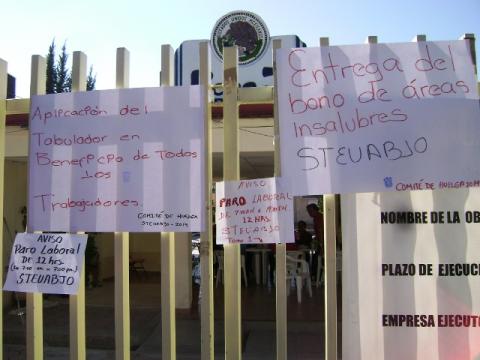 Aplicación del
Tabulador en
Beneficio de Todos
Los
Trabajadores.
COMITÉ DE HUELGA
STEUABJO-2014
Entrega del
bono de áreas
Insalubres
STEUABJO
COMITÉ DE HUELGA 2014
AVISO
PARO LABORAL
12 HRS
STEUABJO
AVISO
PARO LABORAL
DE 12 hrs
STEUABJO
NOMBRE DE LA OB
PLAZO DE EJECUC
EMPRESA EJECUTO